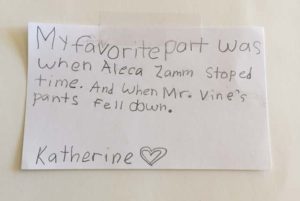 My favorite part was
when Aleca Zamm stoped
time. And when Mr. Vine's
pants fell down.
Katherine